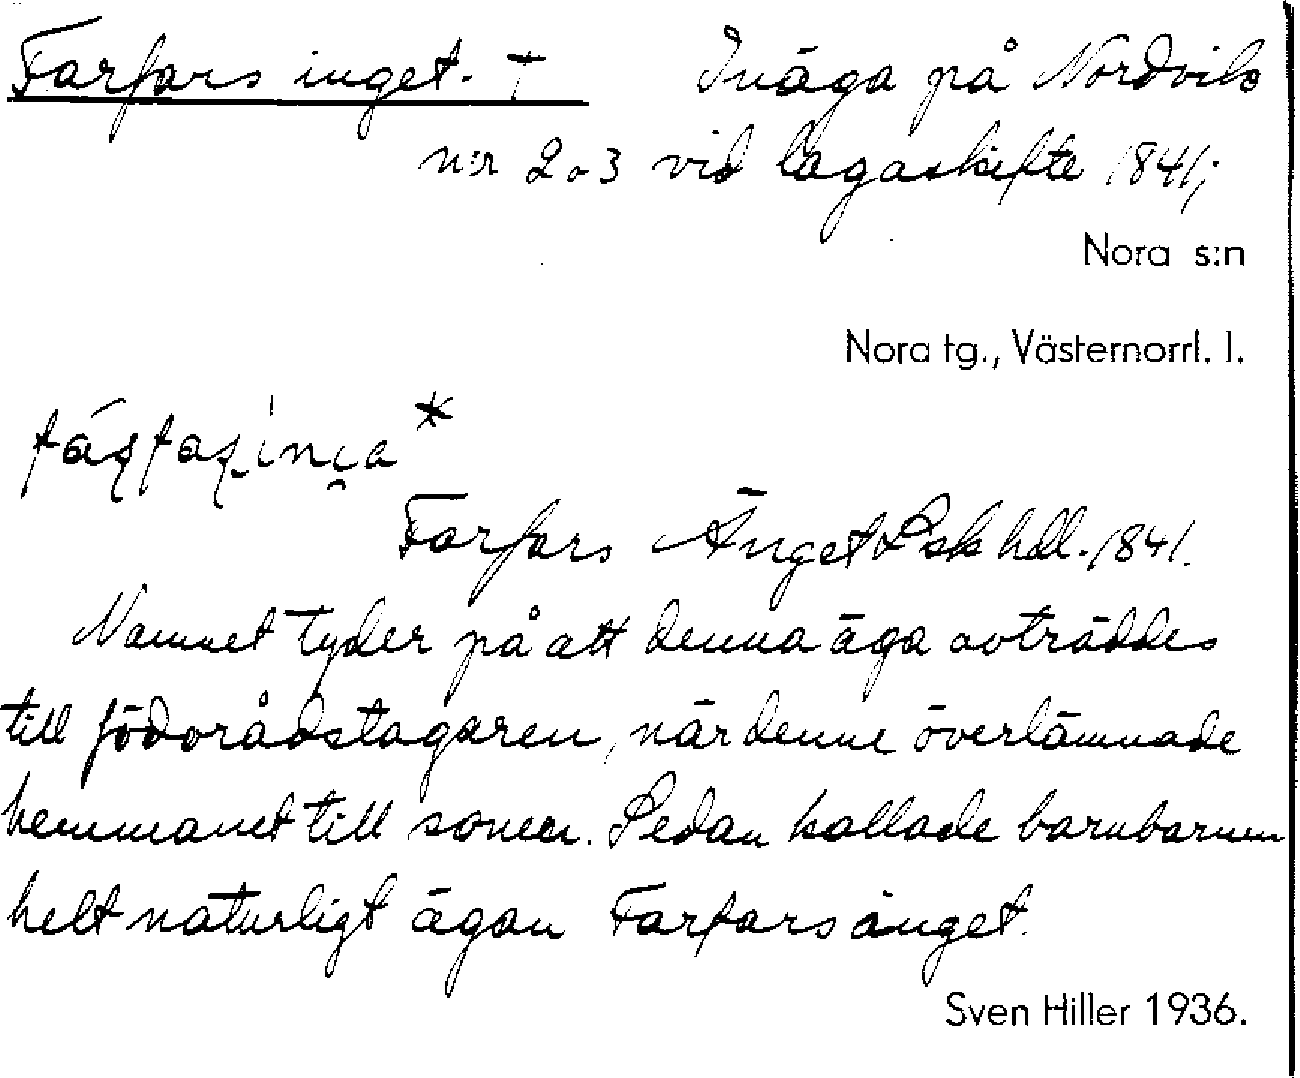 Farfars inget. † Inäga på Nordvik
n:r 2 o 3 vid lagaskifte 1841;
Nora s:n
Nora tg., Västernorrl. l.
Farfars Änget Lsk hdl. 1841.
Namnet tyder på att denna äga avträddes
till födorådstagaren, när denne överlämnade
hemmanet till sonen. Sedan kallade barnbarnen
helt naturligt ägan Farfarsänget.
Sven Hiller 1936.